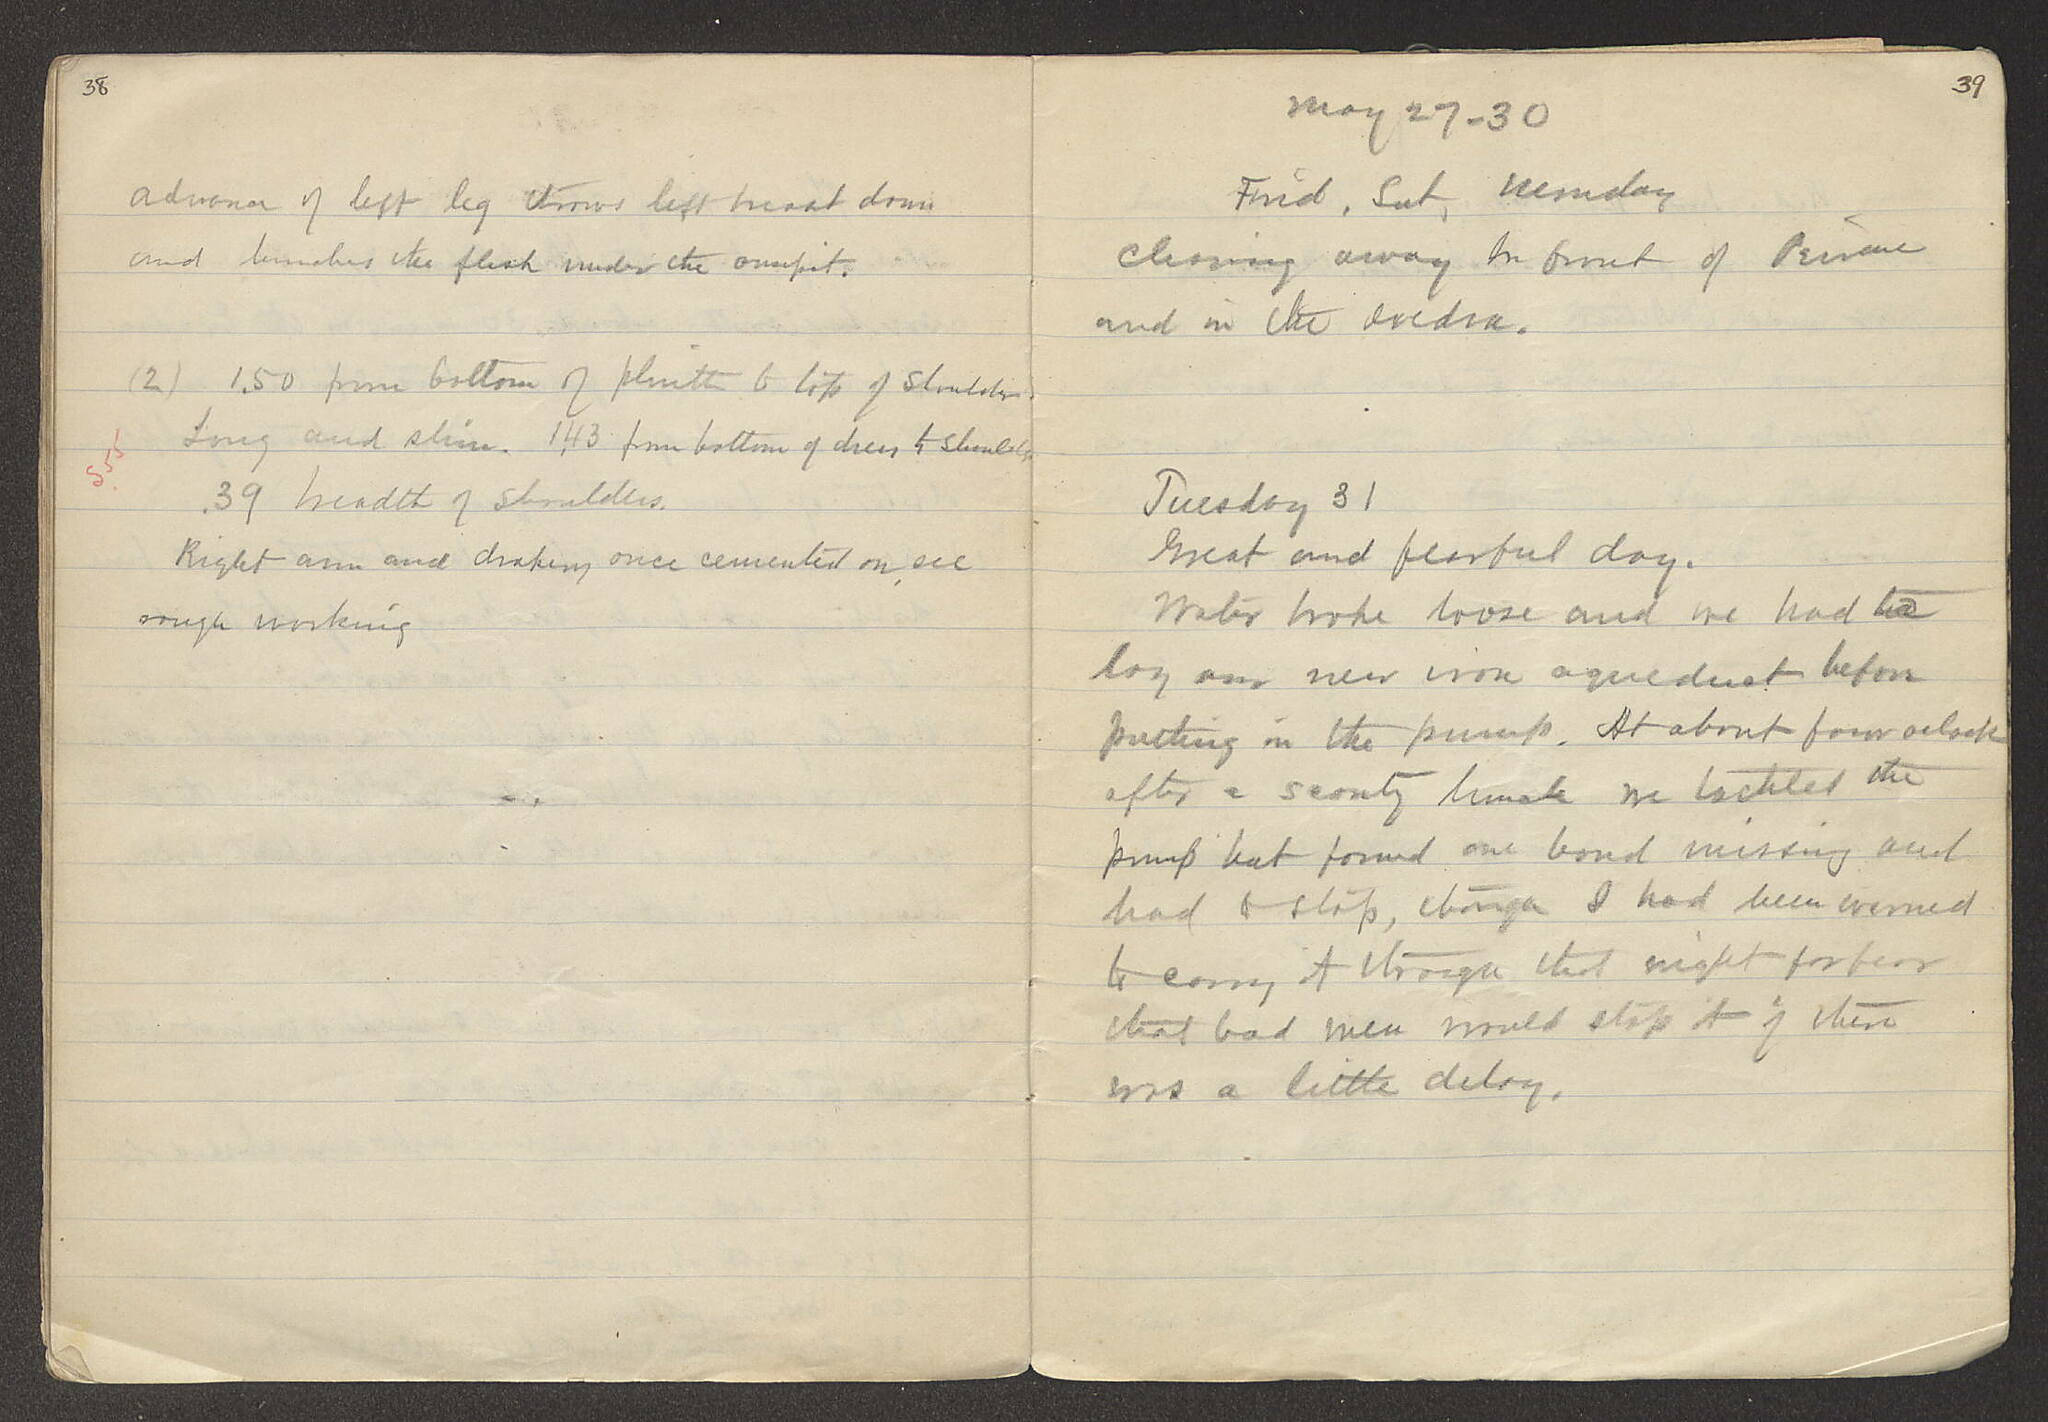 38
advance of left leg throws left breast down
and bunches the flesh under the armpit.
(2) 1.50 from bottom of plinth to top of shoulder.
Long and slim. 1.43 from bottom of dress to shoulder
S.55
.39 breadth of shoulders.
Right arm and drapery once cemented on, see
rough working
39
May 27-30
Frid, Sat, Monday
Clearing away in front of Peirene
and in the exedra.
Tuesday 31
Great and fearful day.
Water broke loose and we had to
lay our new iron aqueduct before
putting in the pump. At about four oclock
after a scanty lunch we tackled the
pump but found one bond missing and
had to stop, though I had been warned
to carry it through that night for fear
that bad men would stop it if there
was a little delay.